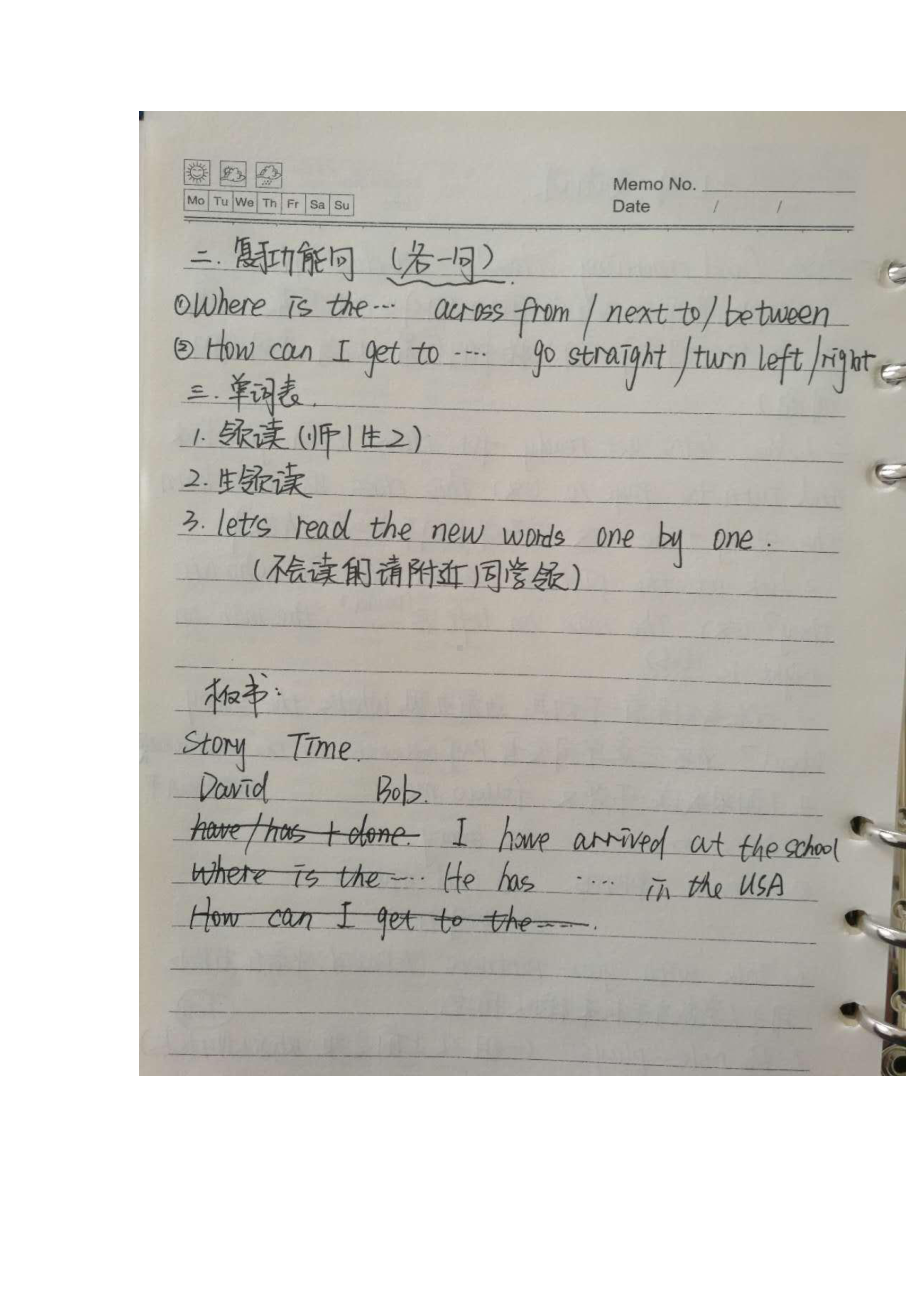 Memo No.
Mo Tu We Th Fr Sa Su
Date / /
二.复习功能句 (各一句).
①Where is the… across from / next to / between
② How can I get to …. go straight / turn left / right
三.单词表.
1. 领读(师1生2)
2.生领读
3. let's read the new words one by one.
(不会读的请附近同学领)
板书:
Story Time.
David Bob.
have/has + done. I have arrived at the school
Where is the … He has …. in the USA
How can I get to the …….